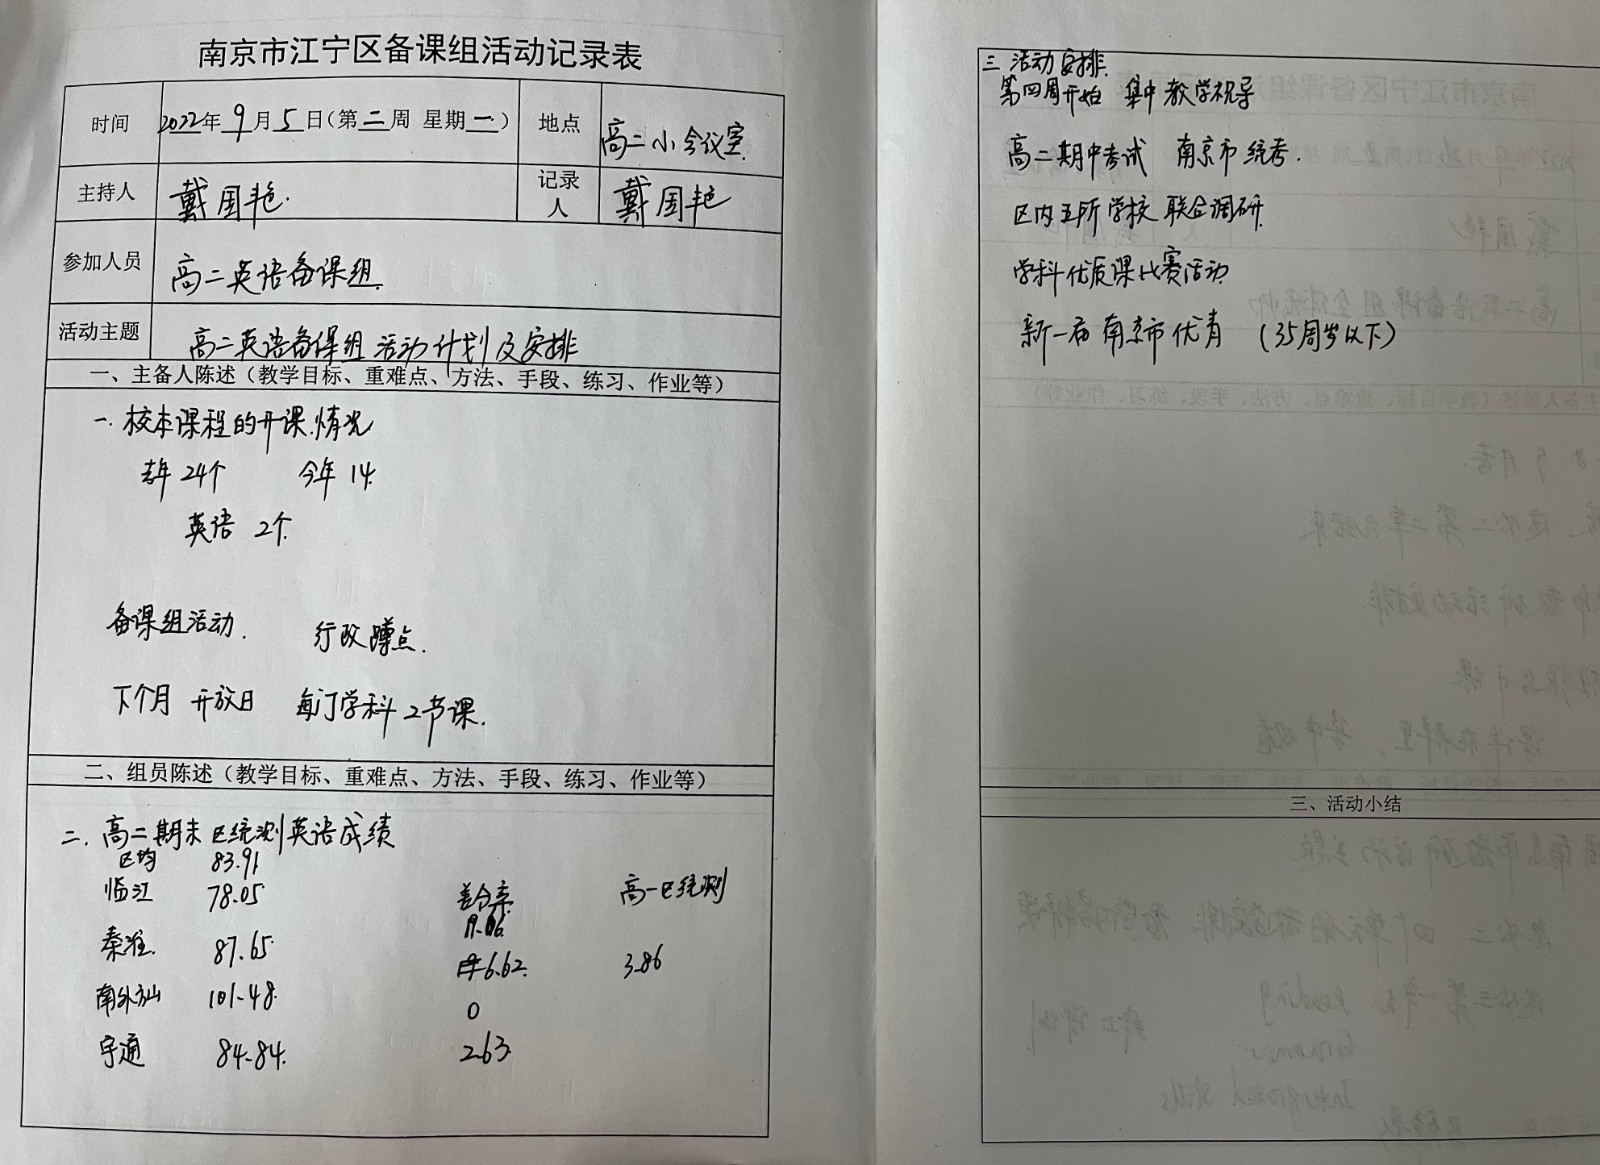 南京市江宁区备课组活动记录表
时间 2022年9月5日(第二周 星期一) 地点 高二小会议室.
主持人 戴国艳. 记录人 戴国艳
参加人员 高二英语备课组.
活动主题 高二英语备课组活动计划及安排
一、主备人陈述(教学目标、重难点、方法、手段、练习、作业等)
一. 校本课程的开课情况
去年 24个 今年 14
英语 2个
备课组活动. 行政蹲点.
下个月 开放日 每门学科2节课.
二、组员陈述(教学目标、重难点、方法、手段、练习、作业等)
二. 高二期末区统测英语成绩
区均 83.91
临江 78.05 差分率 高一区统测
秦淮. 87.65 6.62. 3.86
南外方山 101.48 0
宇通 84.84. 2.63
三 活动安排.
第四周开始 集中教学视导
高二期中考试 南京市统考.
区内五所学校联合调研.
学科优质课比赛活动
新一届南京市优青 (35周岁以下)
三、活动小结